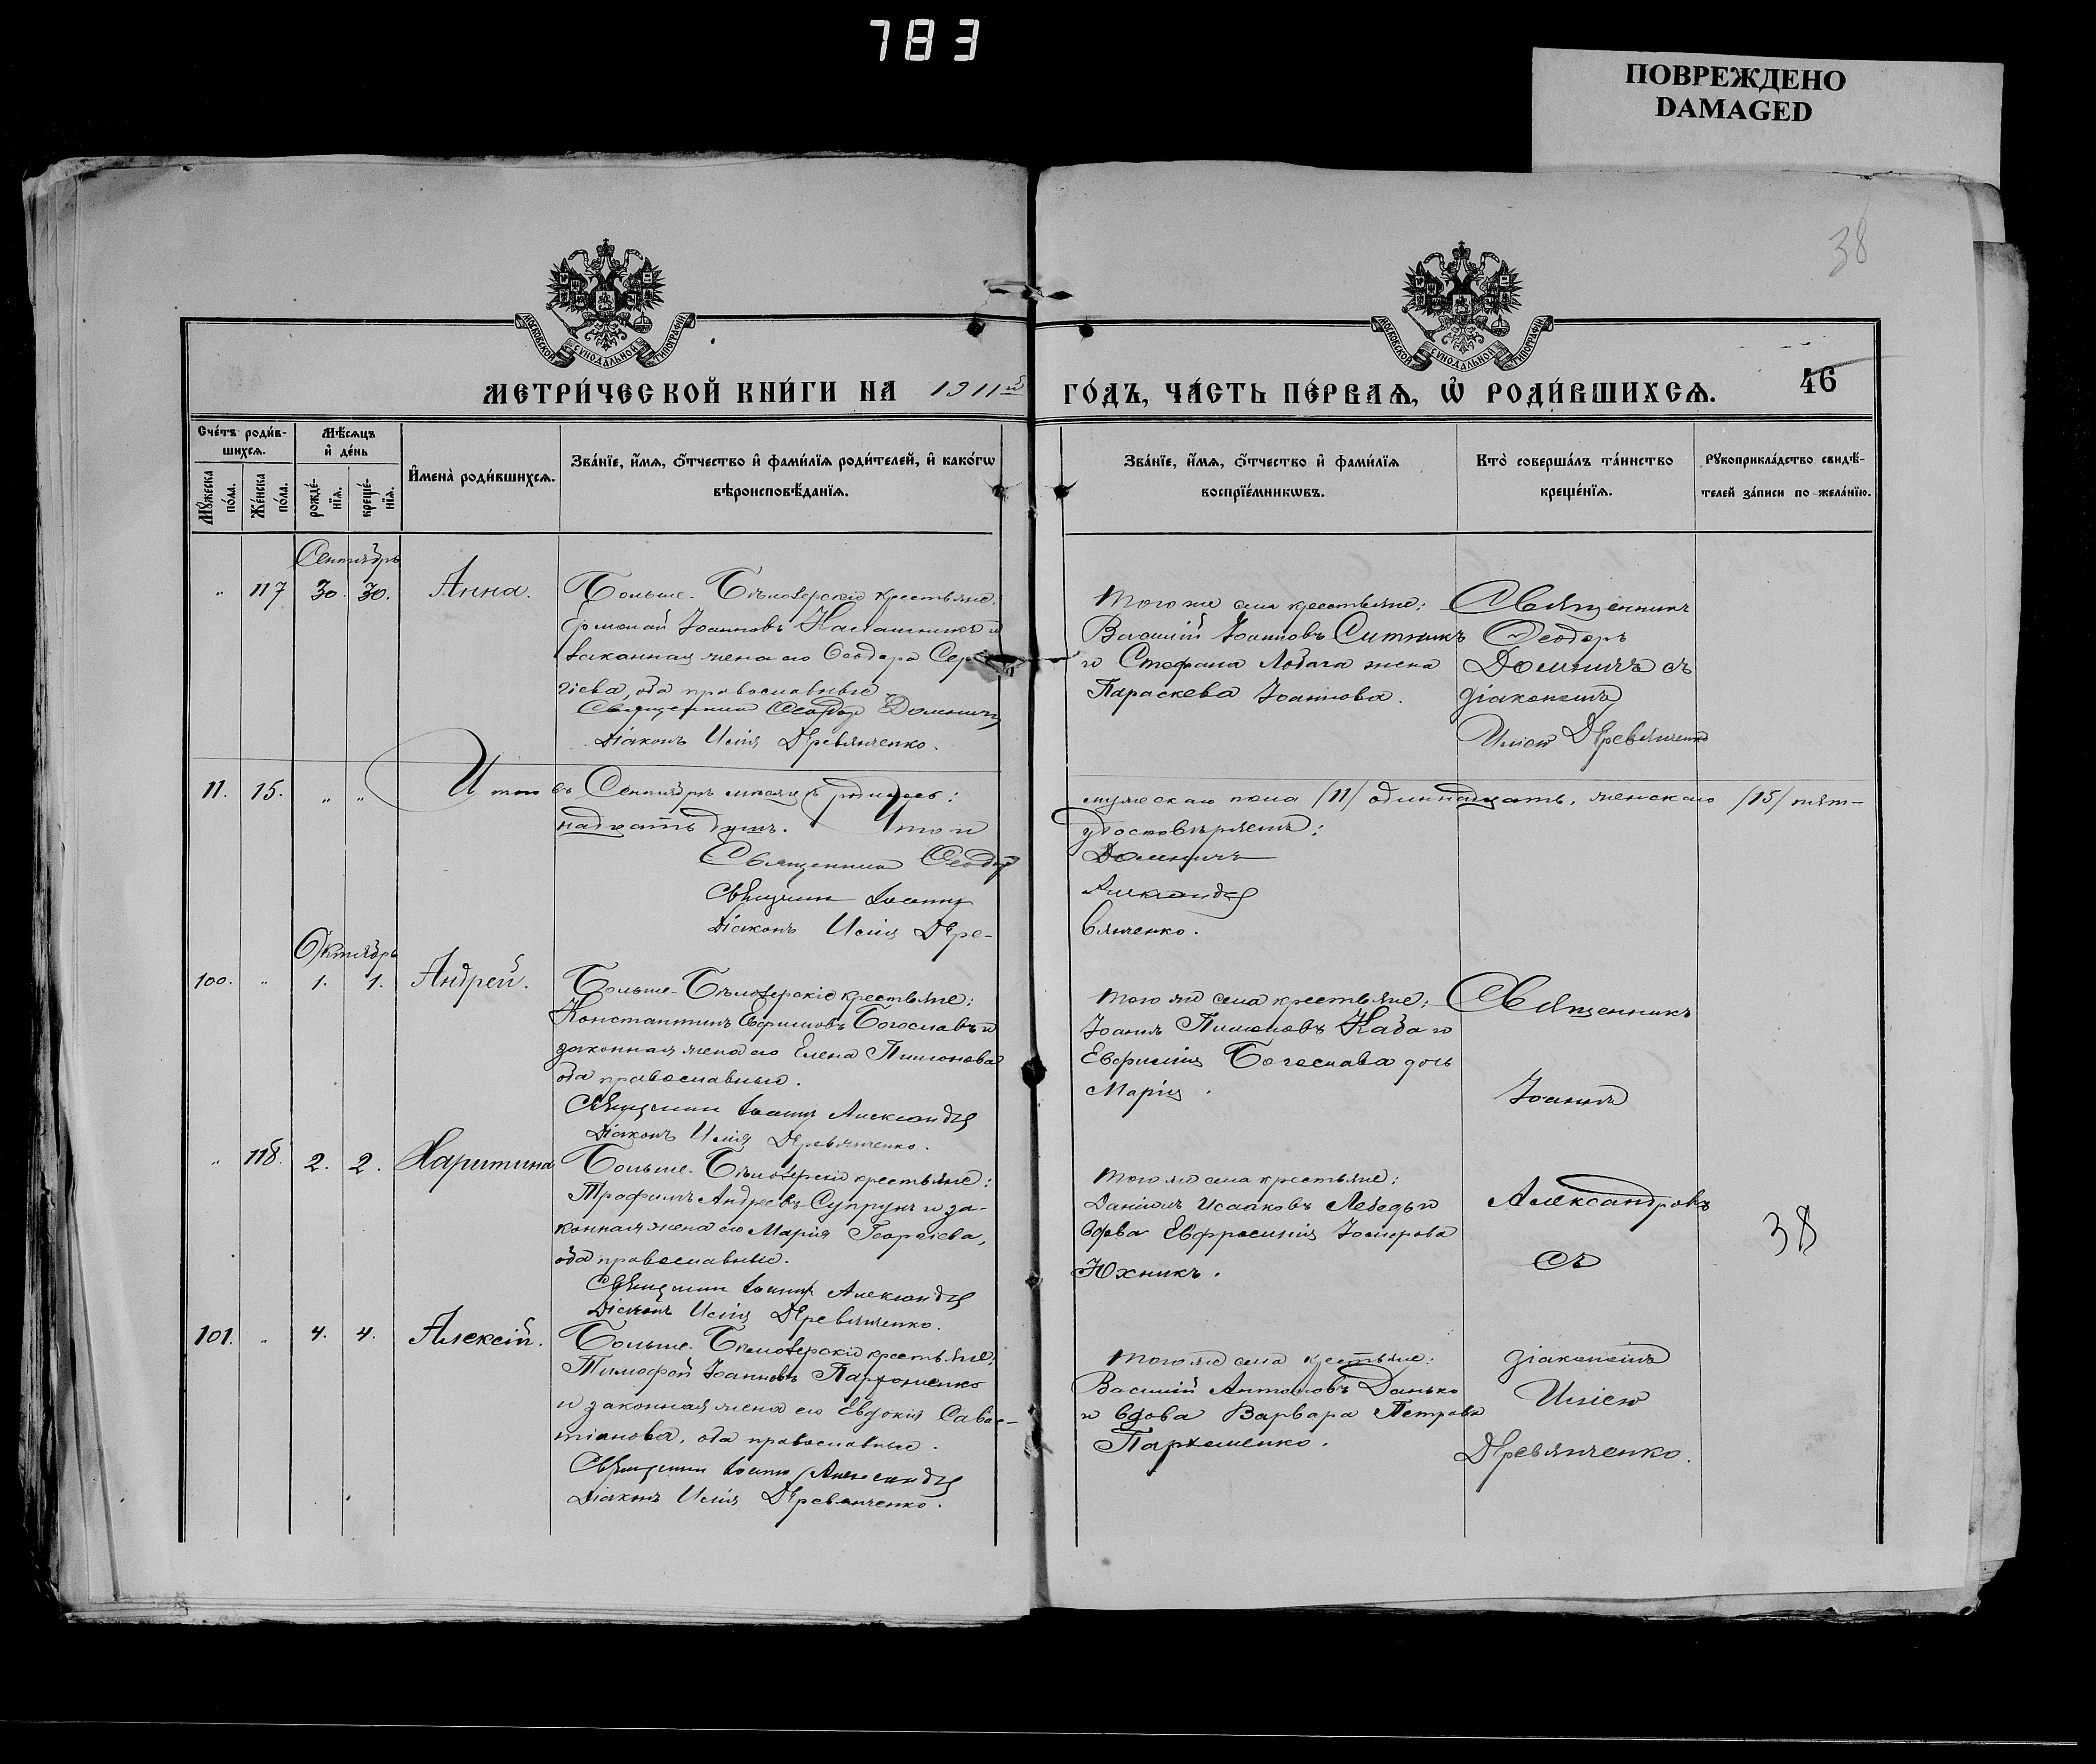 783
ПОВРЕЖДЕНО
DAMAGED
38
МОСКОВСКОЙ СѴНОДАЛЬНОЙ ТИПОГРАФІИ
МОСКОВСКОЙ СѴНОДАЛЬНОЙ ТИПОГРАФІИ
МЕТРИ́ЧЕСКОЙ КНИ́ГИ НА 1911й ГО́ДЪ, ЧА́СТЬ ПЕ́РВАѦ, Ѡ҆ РОДИ́ВШИХСѦ.
46
Сче́тъ роди́в-
шихсѧ.
Мꙋ́жеска по́ла.
Же́нска по́ла.
Мѣ́сѧцъ
и҆ де́нь
рожде́-
нїѧ.
креще́-
нїѧ.
И҆мена̀ роди́вшихсѧ.
Зва́нїе, и҆́мѧ, ѻ҆́тчество и҆ фами́лїѧ роди́телей, и҆ како́гѡ
вѣроисповѣ́данїѧ.
Зва́нїе, и҆́мѧ, ѻ҆́тчество и҆ фами́лїѧ
воспрїе́мникѡвъ.
Кто̀ соверша́лъ та́инство
креще́нїѧ.
Рꙋкоприкла́дство свидѣ́-
телей за́писи по жела́нїю.
Сентябрь
" 117 30. 30. Анна.
Больше-Бѣлозерскіе крестьяне:
Ермолай Іоанновъ Калашникъ и
законная жена его Ѳеодора Сер-
гіева, оба православные.
Священникъ Ѳеодоръ Домничъ
Діаконъ Илія Деревянченко.
Того же села крестьяне:
Василій Іоанновъ Ситникъ
и Стефана Лобача жена
Параскева Іоаннова.
Священникъ
Ѳеодоръ
Домничъ съ
діакономъ
Иліею Деревянченко
11. 15. " " Итого въ Сентябрѣ мѣсяцѣ родилось: мужескаго пола /11/ одиннадцать, женскаго /15/ пят-
надцать душъ. Что и удостовѣряемъ:
Священникъ Ѳеодоръ Домничъ
Священникъ Іоаннъ Александровъ
Діаконъ Илія Дере-
вянченко.
Октябрь
100. " 1. 1. Андрей.
Больше-Бѣлозерскіе крестьяне:
Константинъ Евфимовъ Богославъ и
законная жена его Елена Пимонова
оба православные.
Священникъ Іоаннъ Александровъ
Діаконъ Илія Деревянченко.
Того же села крестьяне:
Іоаннъ Пимоновъ Каба и
Евфимія Богослава дочь
Марія.
Священникъ
Іоаннъ
" 118. 2. 2. Харитина
Больше-Бѣлозерскіе крестьяне:
Трофимъ Андреевъ Супрунъ и за-
конная жена его Марія Георгіева,
оба православные.
Священникъ Іоаннъ Александровъ
Діаконъ Илія Деревянченко.
Того же села крестьяне:
Даніилъ Исааковъ Лебедь и
вдова Евфросинія Іосифова
Юхникъ.
Александровъ
съ
38
101. " 4. 4. Алексій.
Больше-Бѣлозерскіе крестьяне:
Тимофей Іоанновъ Пархоменко
и законная жена его Евдокія Савас-
тіанова, оба православные.
Священникъ Іоаннъ Александровъ
Діаконъ Илія Деревянченко.
Того же села крестьяне:
Василій Антоновъ Данько
и вдова Варвара Петрова
Пархоменко.
діакономъ
Иліею
Деревянченко.